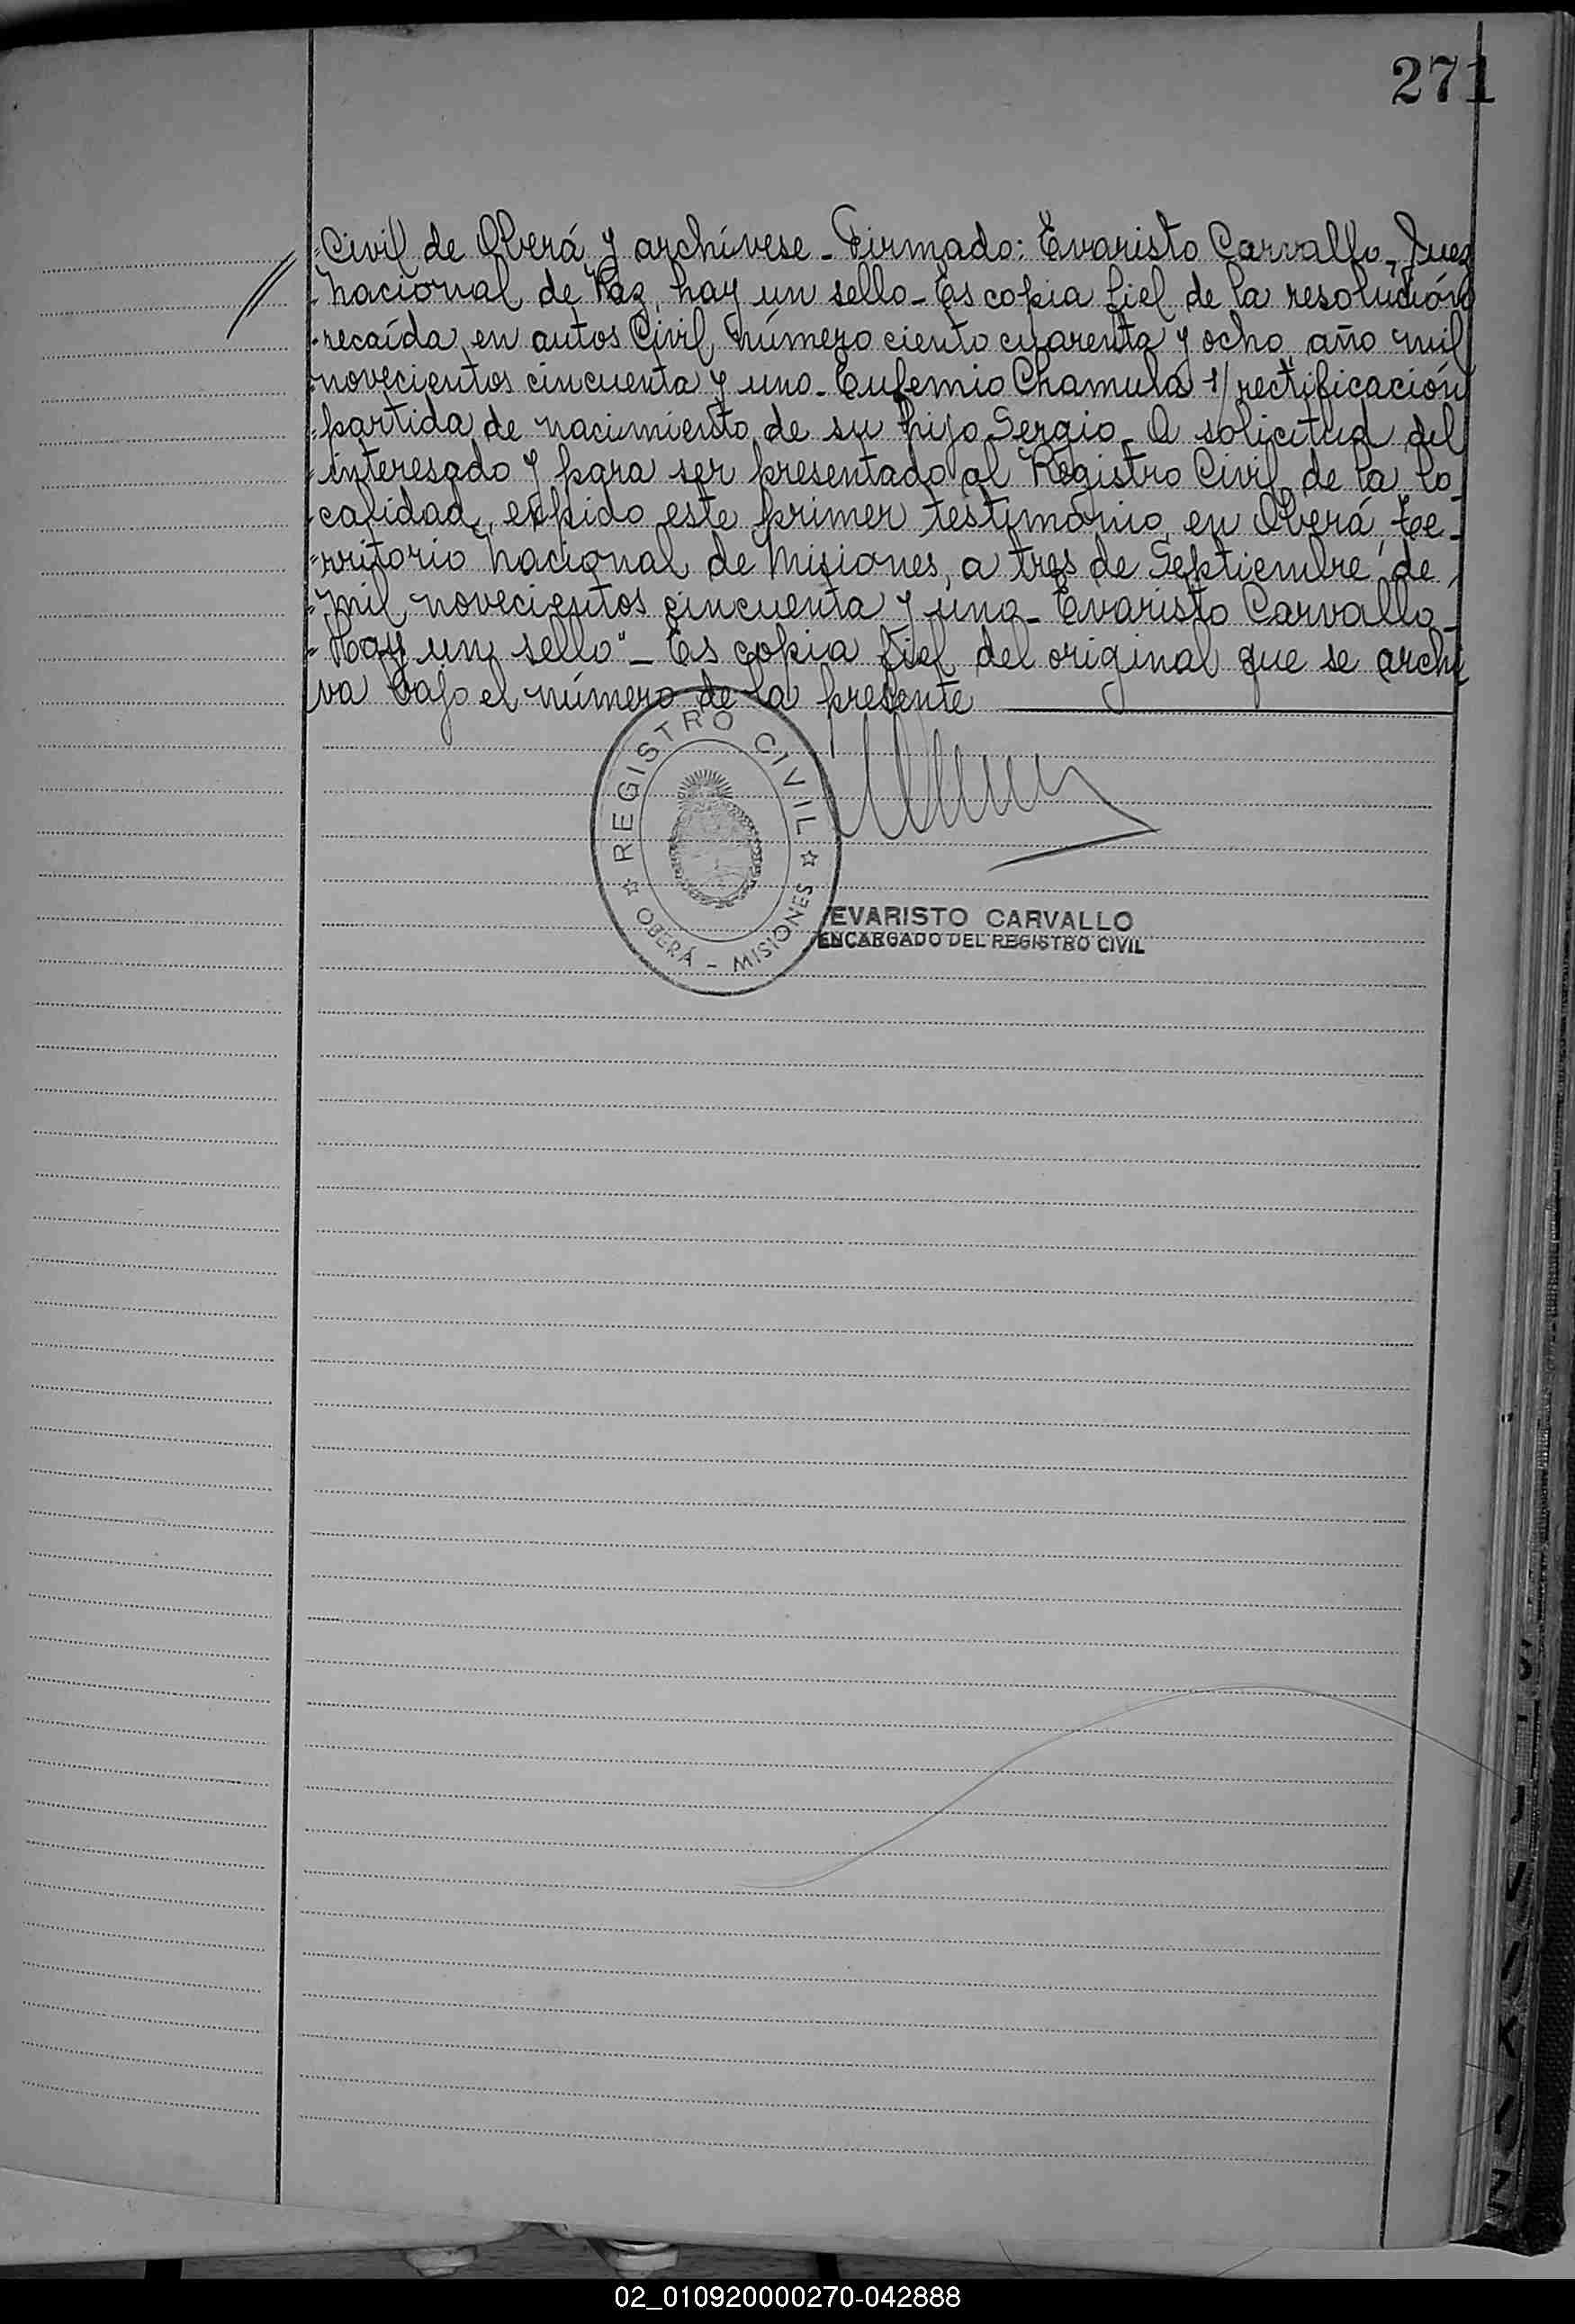 271
"Civil de Oberá y archívese - Firmado: Evaristo Carvallo, Juez
"Nacional de Paz, hay un sello - Es copia fiel de la resolución
"recaída en autos Civil, número ciento cuarenta y ocho, año mil
"novecientos cincuenta y uno - Eufemio Chamula s/ rectificación
"partida de nacimiento de su hijo Sergio - A solicitud del
"interesado y para ser presentado al Registro Civil de la lo-
"calidad, expido este primer testimonio, en Oberá, te-
"rritorio Nacional de Misiones, a tres de Septiembre de
"mil novecientos cincuenta y uno - Evaristo Carvallo -
"Hay un sello" - Es copia fiel del original que se archi
va bajo el número de la presente
REGISTRO CIVIL
OBERÁ - MISIONES
EVARISTO CARVALLO
ENCARGADO DEL REGISTRO CIVIL
02_010920000270-042888